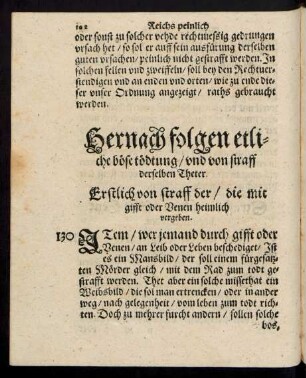 102 Reichs peinlich
oder sonst zu solcher vehde rechtmessig gedrungen
vrsach het / so sol er auff sein ausfürung derselben
guten vrsachen / peinlich nicht gestrafft werden. In
solchen fellen vnd zweiffeln / soll bey den Rechtuer-
stendigen vnd an enden vnd orten / wie zu ende die-
ser vnser Ordnung angezeigt / raths gebraucht
werden.
Hernach folgen etli-
che böse tödtung / vnd von straff
derselben Theter.
Erstlich von straff der / die mit
gifft oder Venen heimlich
vergeben.
130 ITem / wer jemand durch gifft oder
Venen / an Leib oder Leben beschediget / Ist
es ein Mansbild / der soll einem fürgesatz-
ten Mörder gleich / mit dem Rad zum todt ge-
strafft werden. Thet aber ein solche missethat ein
Weibsbild / die sol man ertrencken / oder in ander
weg / nach gelegenheit / vom leben zum todt rich-
ten. Doch zu mehrer furcht andern / sollen solche
bos,